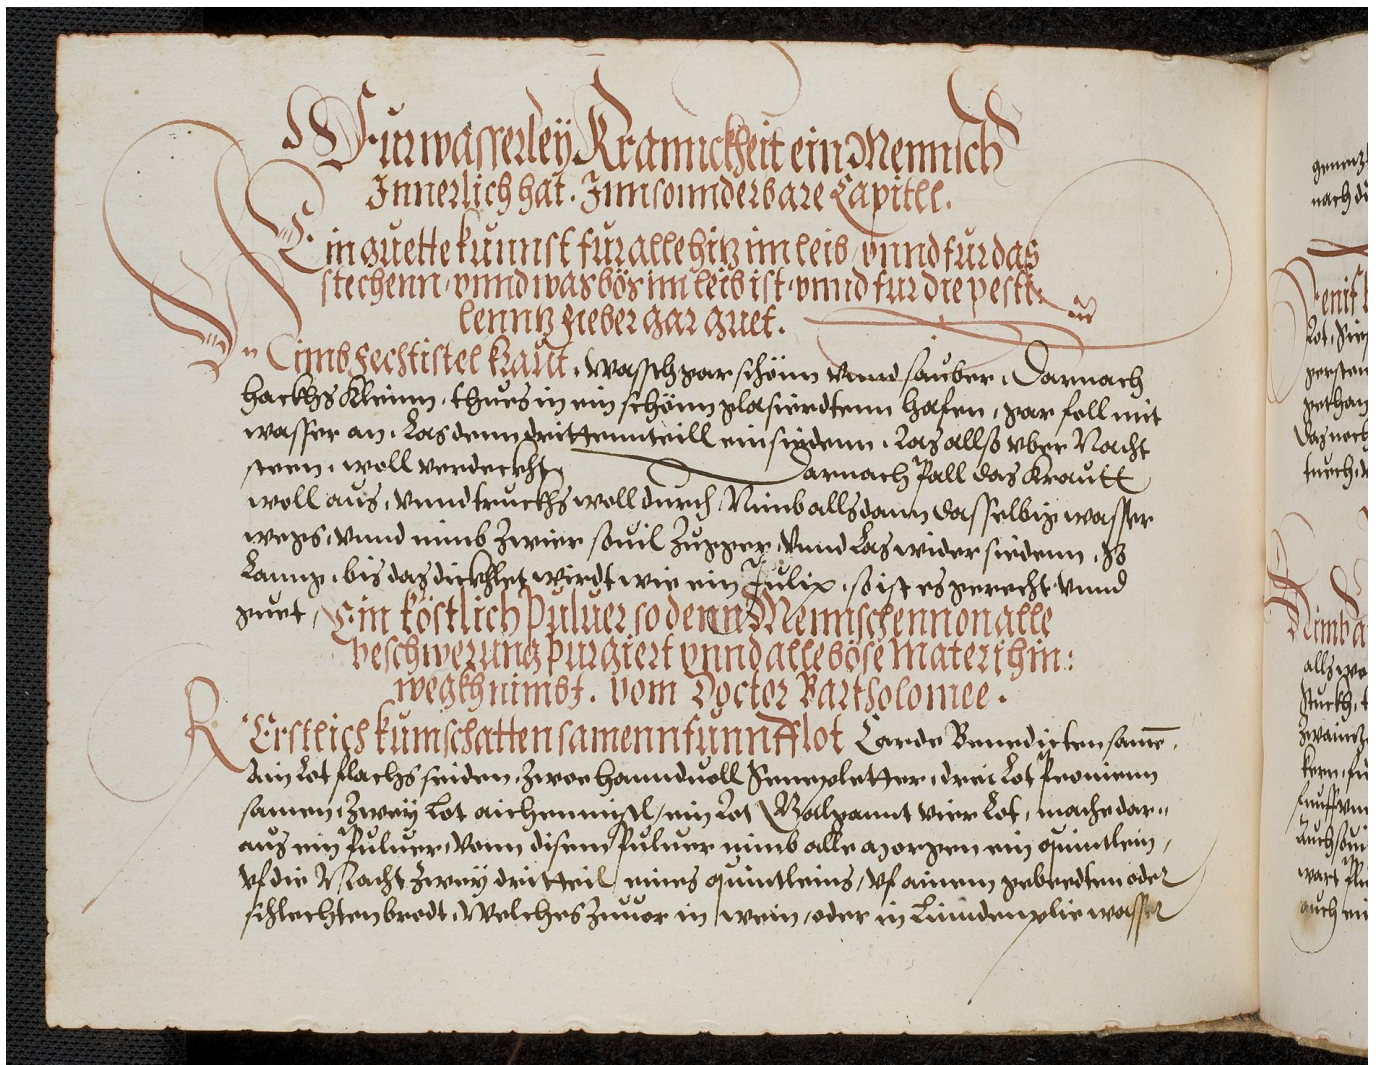 Fur wasserley Krannckheit ein Mennsch
Innerlich hat. Inn sounnderbare Capitel.
Ein guette kunnst fur alle hitz im leib, vnnd fur das
stechenn, vnnd was bös im leib ist, vnnd fur die pesti:
lenntz fieber gar guet.
Nimb Fechtistel kraut, wassch gar schönn vnnd sauber, Darnach
hackhs kleinn, thues in ein schönn glasierdtenn hafen, gar foll mit
wasser an, Las denn drittenn teill ein siedenn, Las allso vber Nacht
steen, woll verdeckht, Darnach Pall das Krautt
woll aus, vnnd truckhs woll durch, Nimb allsdann dasselbig wasser
wegs, vnnd nimb zwier souil Zugger, vnnd Las wider siedenn, so
Lanng, bis das dickhlet wirdt wie ein Julix, so ist es gerecht vnnd
guet, Ein köstlich Puluer so denn Mennschenn von alle
beschwerung Purgiert vnnd alle böse Materi hin:
weckh nimbt. Vom Doctor Bartholomee.
R Erstlich kumschatten samenn funnff lot Carde Benedicten samē,
Ain Lot flachs seiden, zwoe hannduoll Senepletter, drei Lot Peonienn
samen, zwey Lot aichenmistl, ein Lot Galgannt vier Lot, mache dar,,
aus ein Puluer, Vonn disem Puluer nimb alle morgen ein quintlein,
Vf die Nacht zwey dritteil eines quintleins, Vf ainem gebeedten oder
schlechten brodt, Welches zuuor in wein, oder in Linndenplie wasser
genentz
nach di